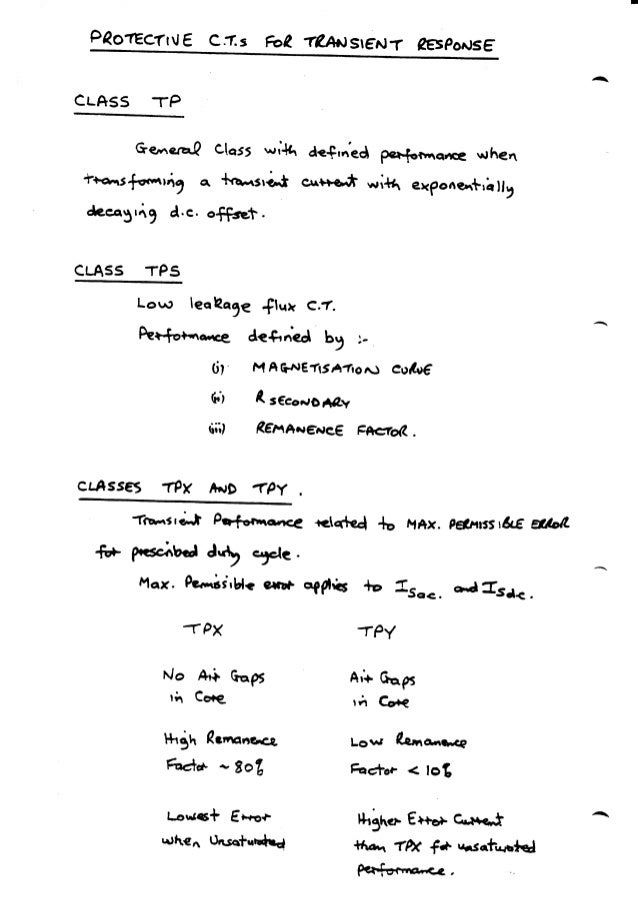 PROTECTIVE C.T.s FOR TRANSIENT RESPONSE
CLASS TP
General Class with defined performance when
transforming a transient current with exponentially
decaying d.c. offset.
CLASS TPS
Low leakage flux C.T.
Performance defined by :-
(i) MAGNETISATION CURVE
(ii) R SECONDARY
(iii) REMANENCE FACTOR.
CLASSES TPX AND TPY.
Transient Performance related to MAX. PERMISSIBLE ERROR
for prescribed duty cycle.
Max. Permissible error applies to I Sac. and I Sdc.
TPX TPY
No Air Gaps Air Gaps
in Core in Core
High Remanence Low Remanence
Factor ~ 80% Factor < 10%
Lowest Error Higher Error Current
when Unsaturated than TPX for unsaturated
performance.